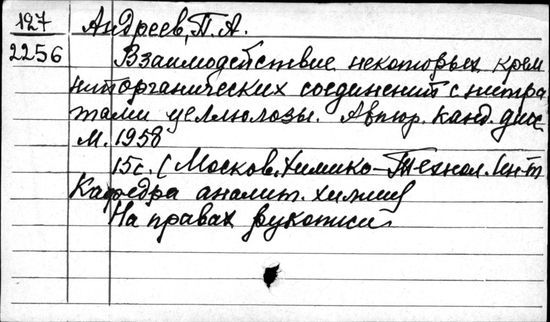 127 Андреев, П. А.
2256 Взаимодействие некоторых крем
нийорганических соединений с нитра
тами целлюлозы. Автор. канд. дисс
М. 1958
15 с. (Москов. Химико-Технол. Ин-т
Кафедра аналит. химии)
На правах рукописи